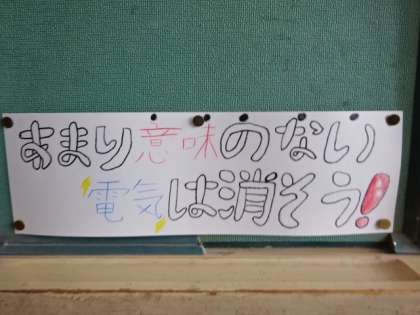 あまり意味のない
電気は消そう!